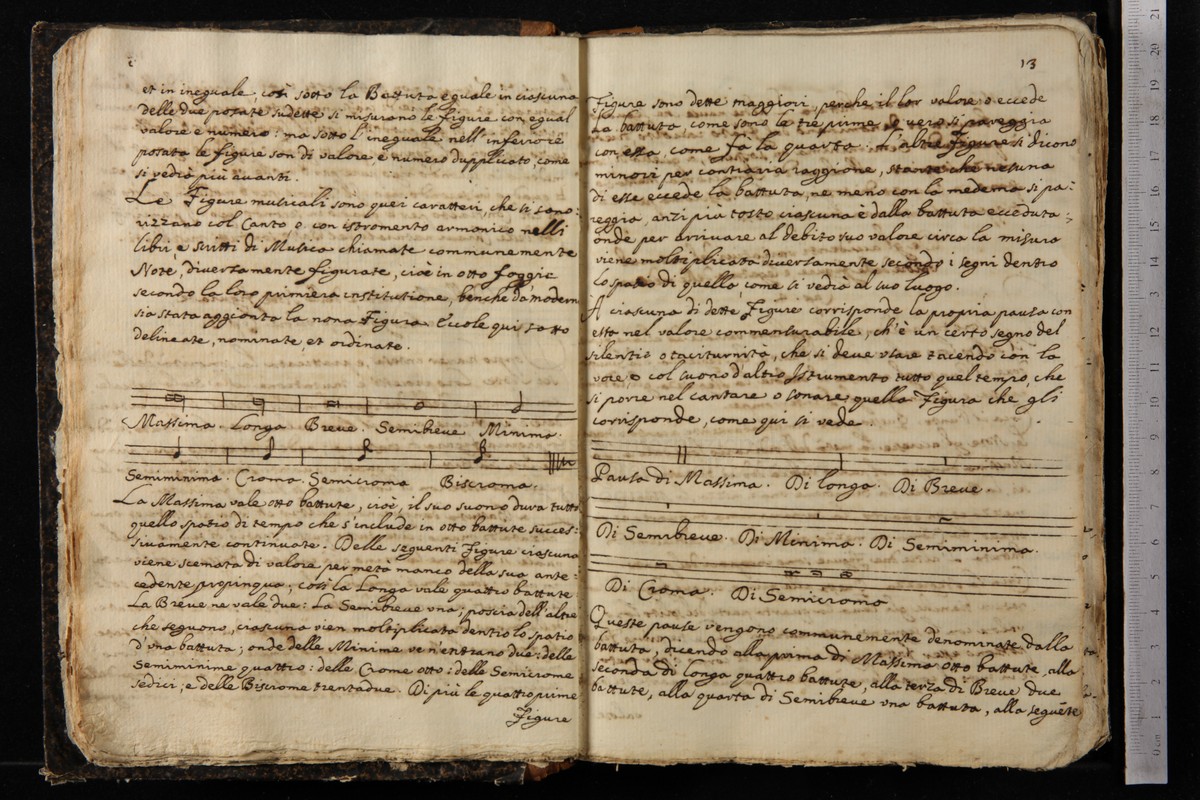 et in ineguale, così sotto la Battuta eguale in ciascuna
delle due posate sudette si misurano le figure con egual
valore e numero: ma sotto l'ineguale nell'inferiore
posata le figure son di valore e numero dupplicato, come
si vedrà più auanti.
Le Figure musicali sono quei caratteri, che si sono:
rizzano col Canto o con istromento armonico nelli
libri, e scritti di Musica chiamate communemente
Note, diuersamente figurate, cioè in otto foggie
secondo la loro primiera institutione, benche da moderni
sia stata aggionta la nona Figura. Eccole qui sotto
delineate, nominate, et ordinate.
Massima. Longa Breue. Semibreue Minima.
Semiminima. Croma. Semicroma Biscroma.
La Massima vale otto battute, cioè, il suo suono dura tutto
quello spatio di tempo che s'include in otto battute succes:
siuamente continuate. Delle seguenti Figure ciascuna
viene scemata di valore per metà manco della sua ante:
cedente propinqua; così la Longa vale quattro battute
La Breue ne vale due: La Semibreue vna; poscia dell'altre
che seguono, ciascuna vien moltiplicata dentro lo spatio
d'vna battuta; onde delle Minime ve n'entrano due: delle
Semiminime quattro: delle Crome otto: delle Semicrome
sedici, e delle Biscrome trentadue. Di più le quattro prime
Figure
13
Figure sono dette maggiori, perche il lor valore o eccede
la battuta come sono le tre prime, o vero si pareggia
con essa, come fà la quarta. L'altre Figure si dicono
minori per contraria raggione, stante che nessuna
di esse eccede la battuta, ne meno con la medema si pa:
reggia, anzi più tosto ciascuna è dalla battuta ecceduta;
onde per arriuare al debito suo valore circa la misura
viene moltiplicata diuersamente secondo i segni dentro
lo spatio di quella, come si vedrà al suo luogo.
A ciascuna di dette Figure corrisponde la propria pausa con
essa nel valore commensurabile, ch'è un certo segno del
silentio o taciturnità, che si deue vsare tacendo con la
voce o col suono d'altro Istrumento tutto quel tempo, che
si porre nel cantare o sonare quella Figura che gli
corrisponde, come qui si vede.
Pausa di Massima. Di longa. Di Breue.
Di Semibreue. Di Minima. Di Semiminima.
Di Croma. Di Semicroma
Queste pause vengono communemente denominate dalla
battuta, dicendo alla prima di Massima otto battute, alla
seconda di Longa quattro battute, alla terza di Breue due
battute, alla quarta di Semibreue vna battuta, alla seguēte
0 cm 1 2 3 4 5 6 7 8 9 10 11 12 13 14 15 16 17 18 19 20 21